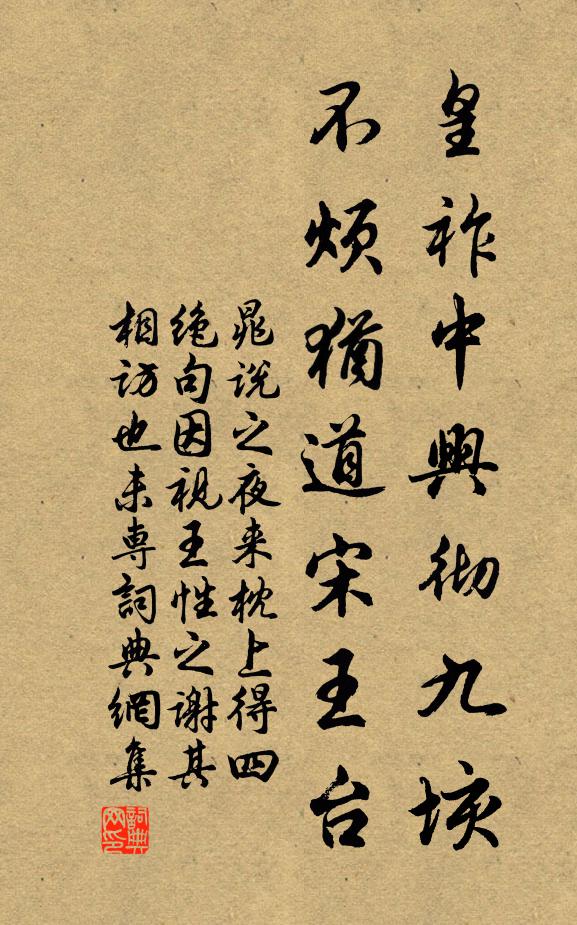 皇祚中興彻九垓
不烦猶道宋王台
晁说之夜来枕上得四
绝句因视王性之谢其
相访也未専詞典網集
詞典网印